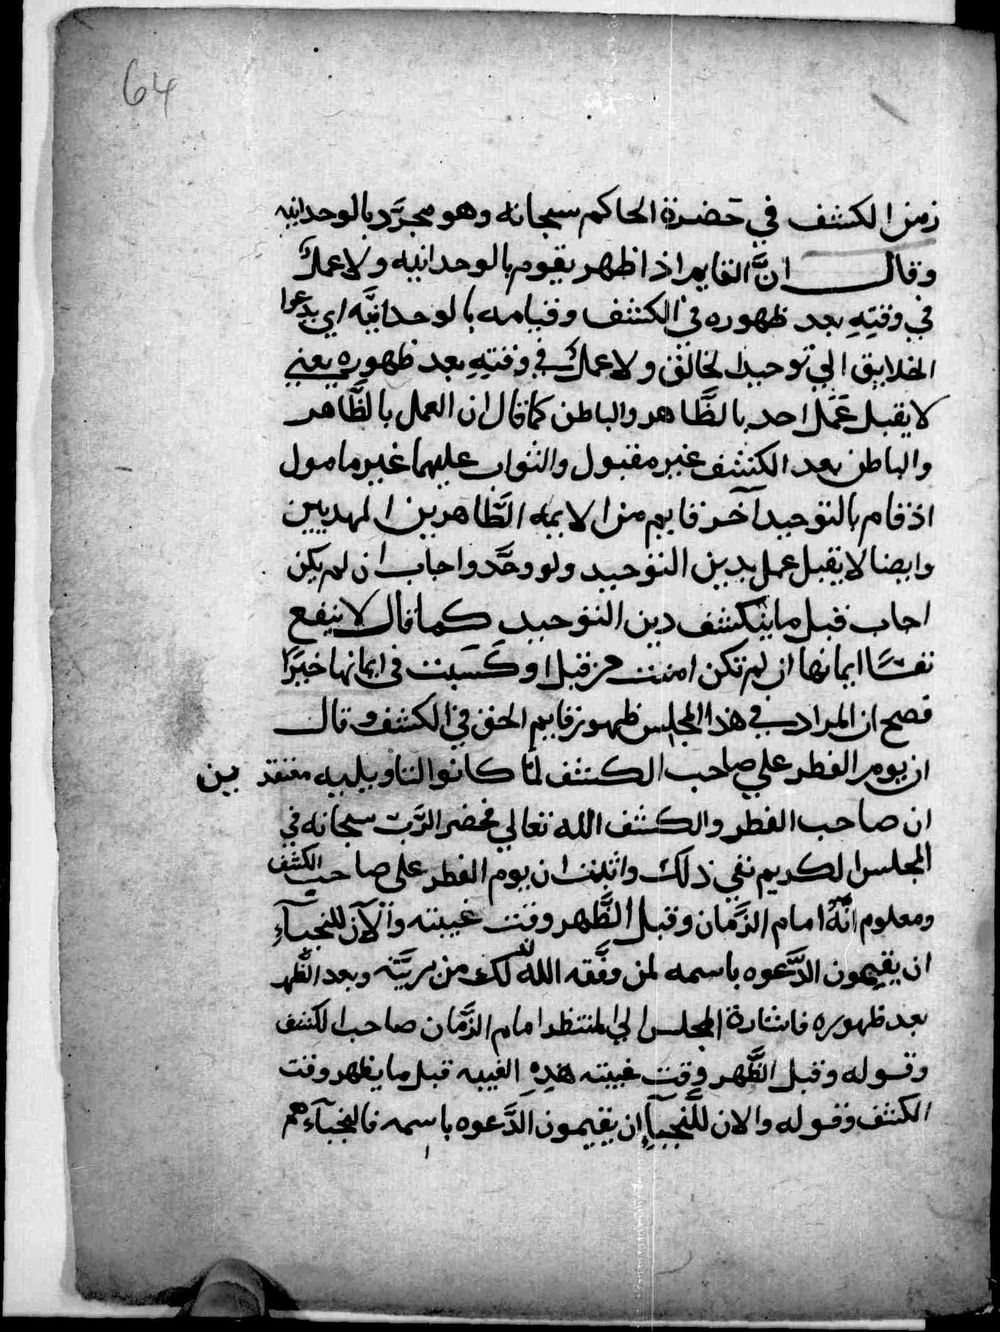 64
زمن الكشف في حضرة الحاكم سبحانه وهو مجرَّد بالوحدانيه
وقال انَّ القايم اذا ظهر يقوم بالوحدانيه ولا عمل
في وقتِهِ بعد ظهوره في الكشف وقيامه بالوحدانيَّه اي يدعوا
الخلايق الي توحيد الخالق ولا عمل في وقتِهِ بعد ظهورِه يعني
لا يقبل عَمَل احد بالظَّاهر والباطن كما قال ان العمل بالظَّاهر
والباطن بعد الكشف غير مقبول والثواب عليهما غير مامول
اذ قام بالتوحيد آخر قايم من الايمه الظَّاهرين المهديين
وايضا لا يقبل عمل بدين التوحيد ولو وحَّد واجاب ان لم يكن
اجاب قبل ما ينكشف دين التوحيد كما قال لا ينفع
نفسًا ايمانها ان لم تكن امنت من قبل او كَسَبت في ايمانها خيرًا
فصح ان المراد في هذا المجلس ظهور قايم الحق في الكشف وقال
ان يوم الفطر علي صاحب الكشف لمّا كانوا التاويليه معتقدين
ان صاحب الفطر والكشف الله تعالي فحضر الرَّب سبحانه في
المجلس الكريم نفي ذلك واثبت ان يوم الفطر علي صاحب الكشف
ومعلوم انَّهُ امام الزَّمان وقبل الظَّهر وقت غيبته والآن للنجبآءِ
ان يقيمون الدَّعوه باسمه لمن وفَّقه الله لذلك من بريَّته وبعد الظَّهر
بعد ظهوره فاشارة المجلس الي المنتظر امام الزَّمان صاحب الكشف
وقوله وقبل الظَّهر وقت غيبته هذِهِ الغيبه قبل ما يظهر وقت
الكشف وقوله والان للنجبآءِ ان يقيمون الدَّعوه باسمه فالنجبآء هم